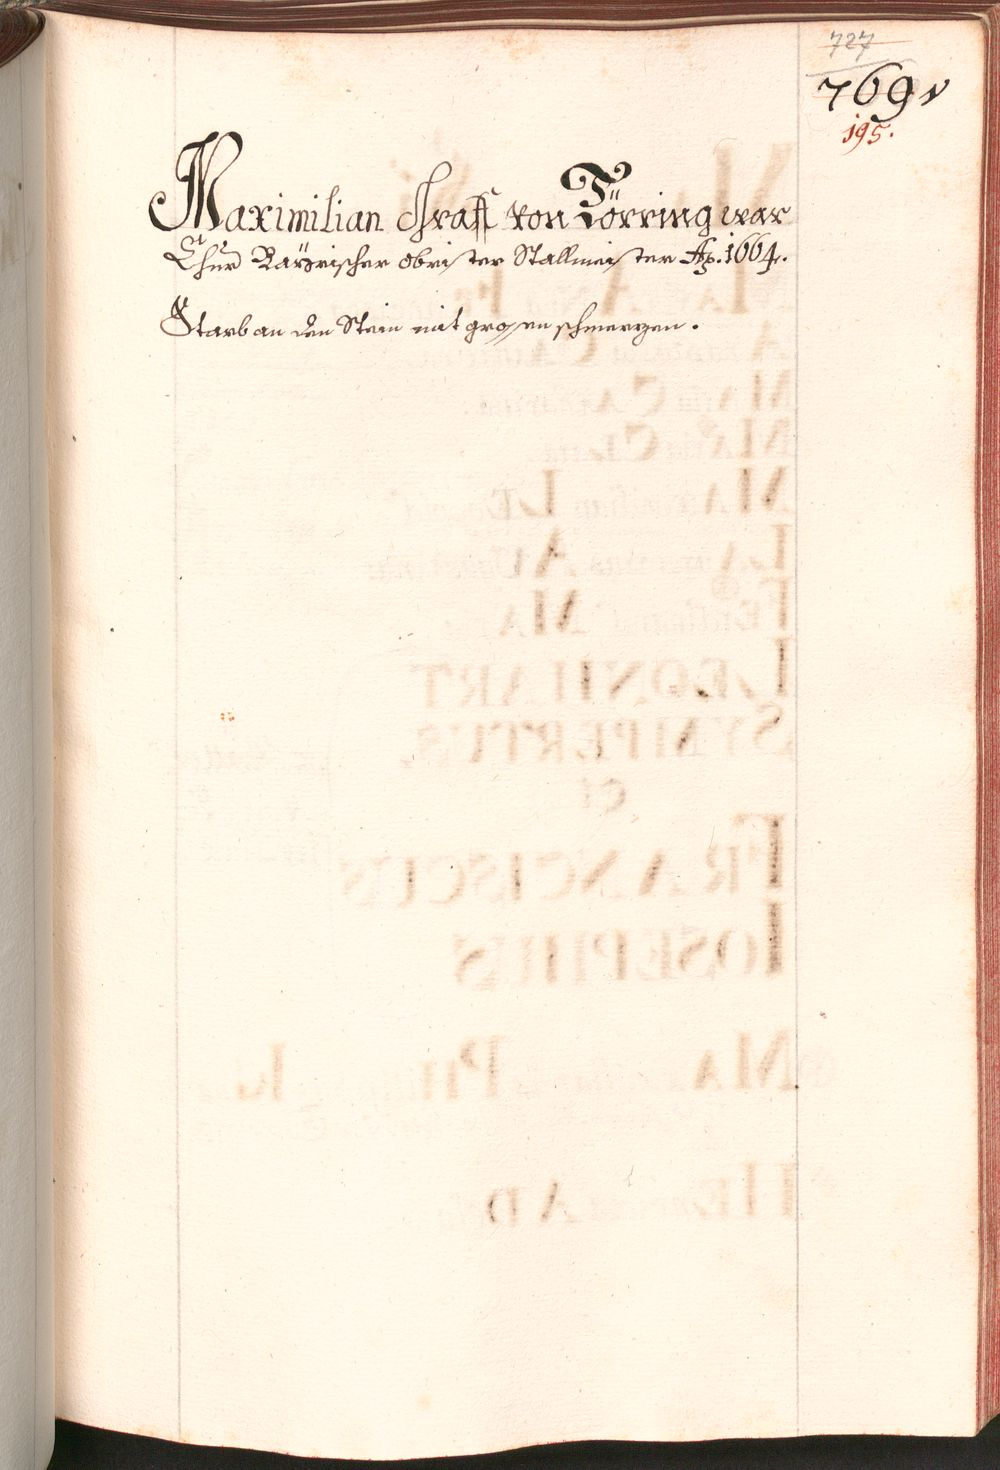 727
769v
195.
Maximilian Graff von Törring war
Chur Bayrischer obrister Stallmeister Ao. 1664.
Starb an den Stein mit grossen schmerzen.